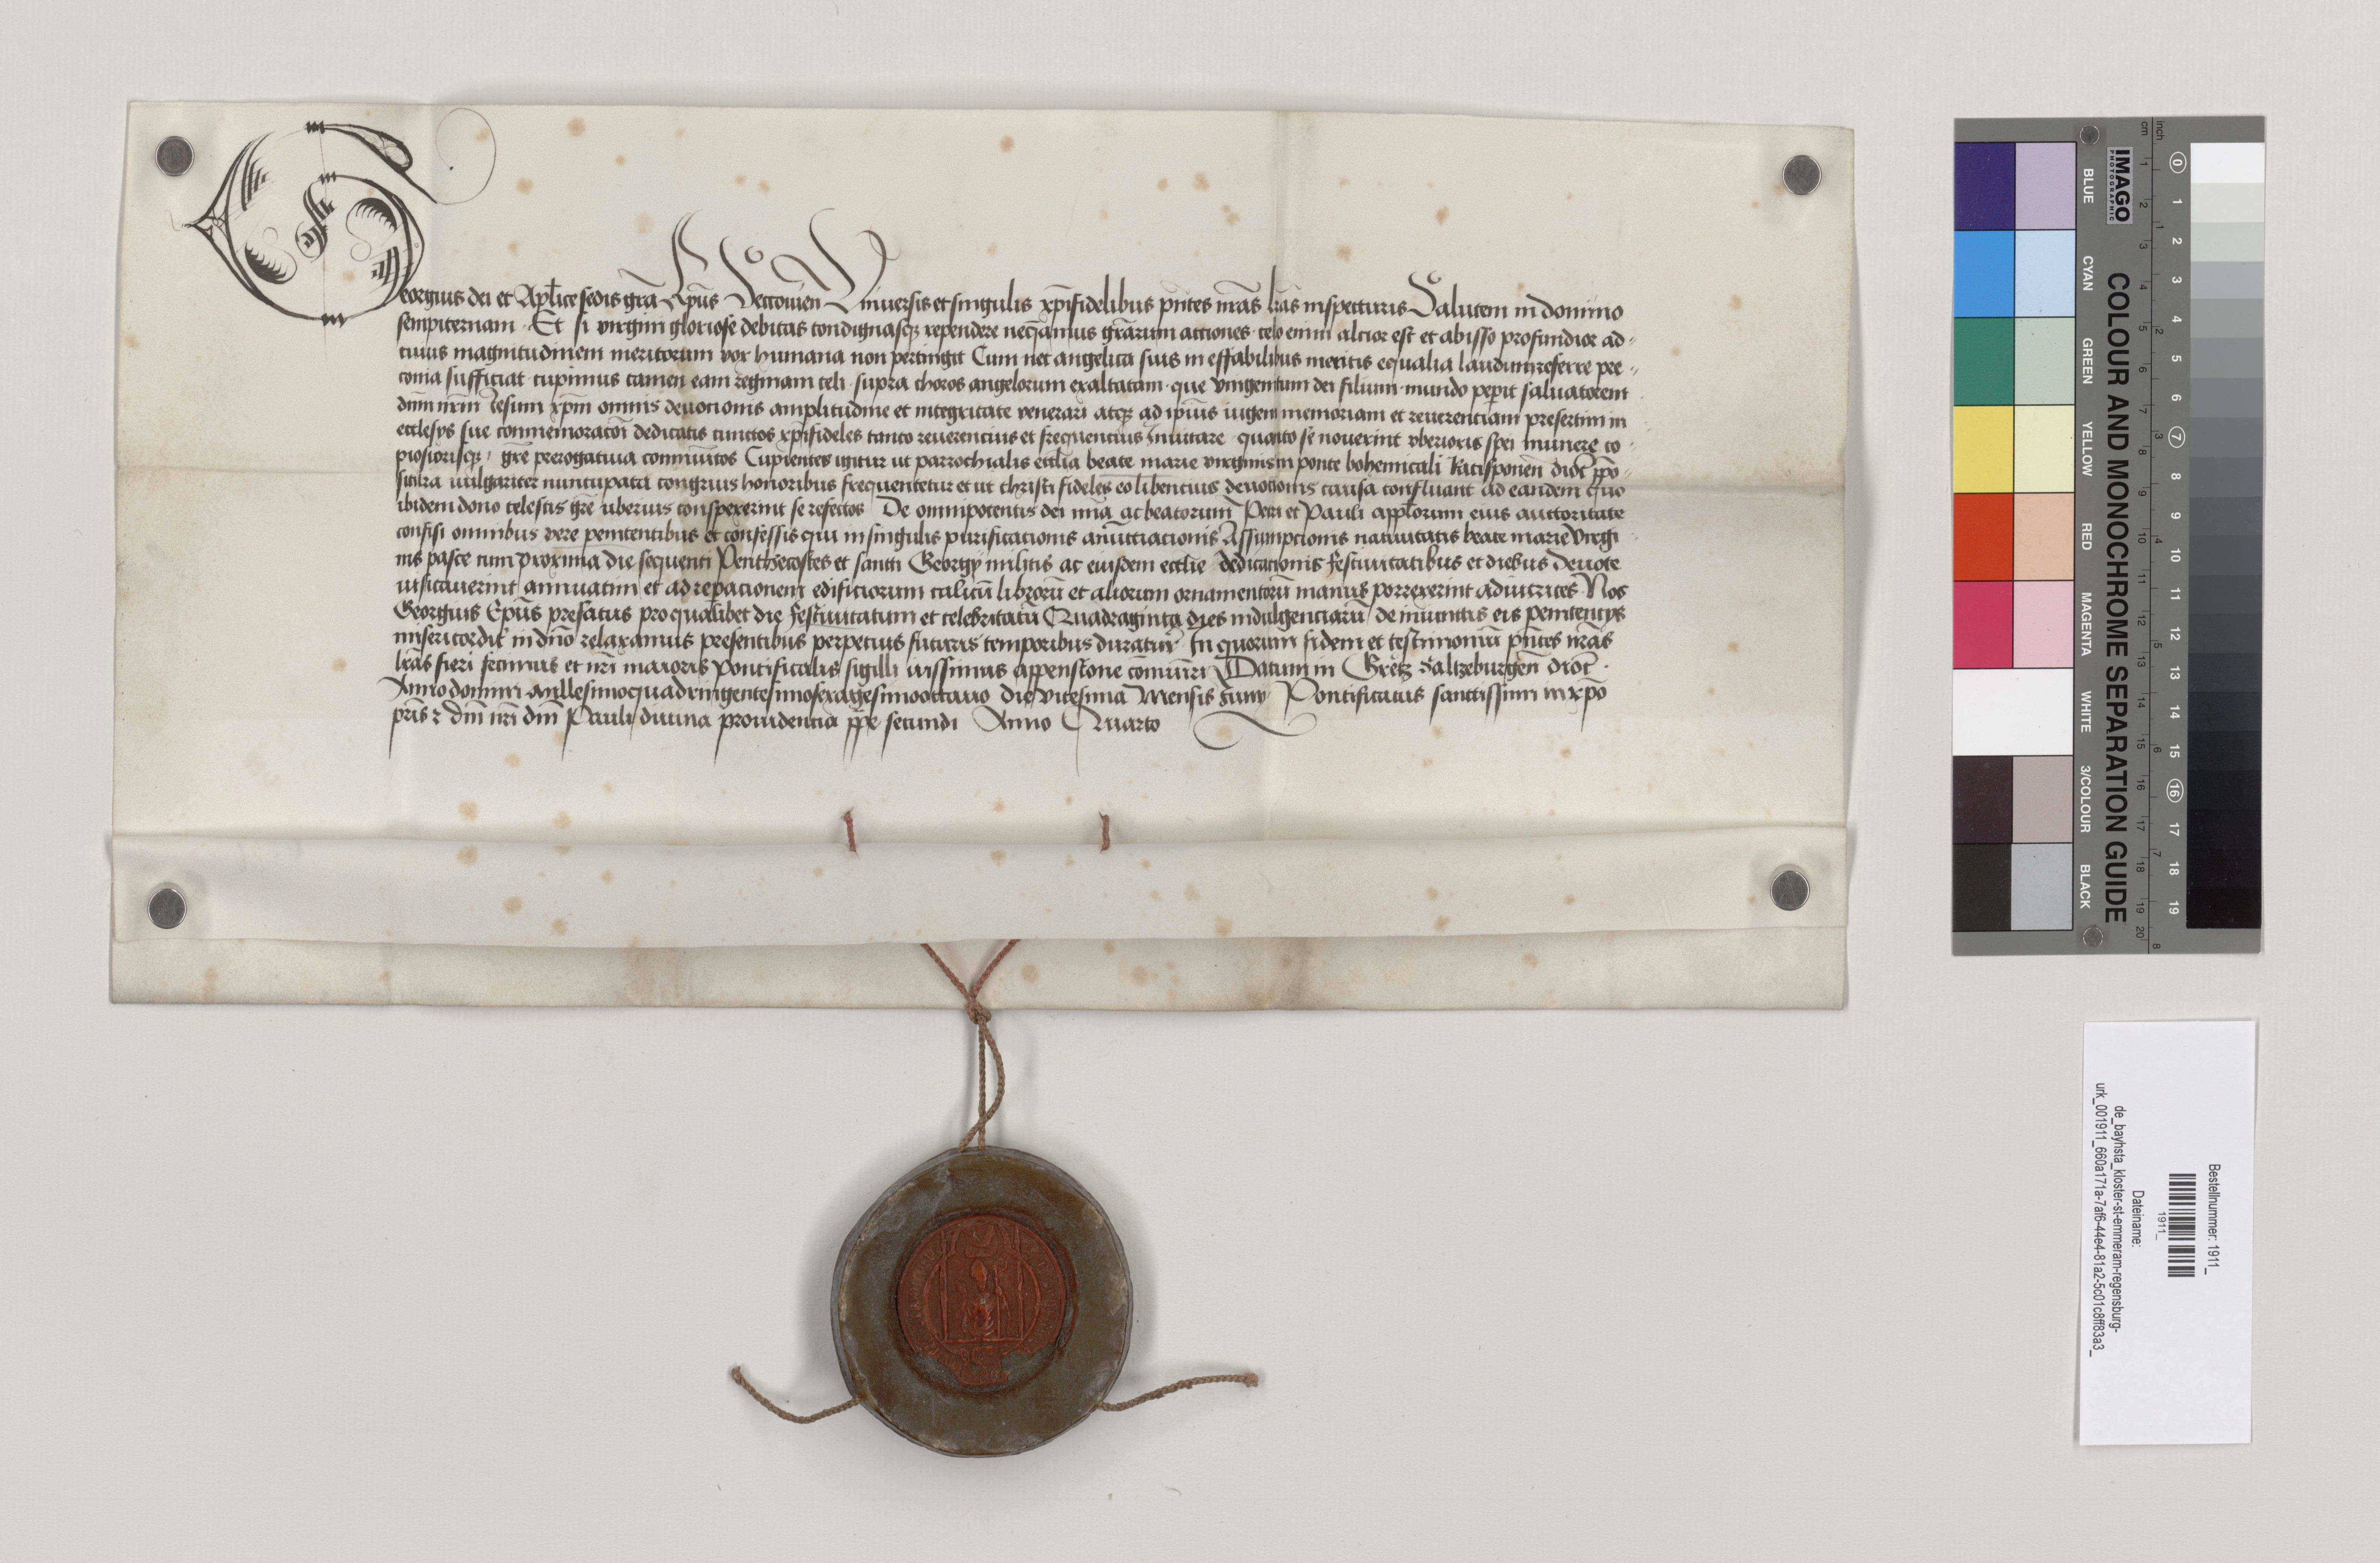 Georgius dei et Apl̄ice sedis grā Ep̄us Vectouien̄ Vniuersis et singulis xp̄ifidelibus pn̄tes nr̄as lr̄as inspecturis Salutem in domino
sempiternam Et si virgini gloriose debitas condignasqꝫ rependere neq̄amus gr̄arum actiones celo enim altior est et abisso profundior ad
cuius magnitudinem meritorum vox humana non pertingit Cum nec angelica suis in effabilibus meritis equalia laudum referre pre-
conia sufficiat cupimus tamen eam reginam celi supra choros angelorum exaltatam que vnigenitum dei filium mundo pep̄it saluatorem
dn̄m nr̄m Iesum xp̄m omnis deuotionis amplitudine et integritate venerari atqꝫ ad ip̄ius iugem memoriam et reuerentiam presertim in
ecclesys sue commemoracōi dedicatis cunctos xp̄ifideles tanto reuerencius et frequencius Inuitare quanto se nouerint vberioris spei munere co-
piosiorisqꝫ gr̄e prerogatiua conniuitos Cupientes igitur ut parrochialis eccl̄ia beate marie virginis in ponte bohemicali Ratisponen̄ dioc̄ p̄po-
uulgariter nuncupata congruis honoribus frequentetur et ut christi fideles eo libencius deuotionis causa confluant ad eandem quo
ibidem dono celestis gr̄e uberius conspexerint se refectos De omnipotentis dei mīa ac beatorum Petri et Pauli appl̄orum eius auctoritate
confisi omnibus vere penitentibus et confessis qui in singulis purificationis anūtiacionis Assumpcionis natiuitatis beate marie virgi
nis pasce cum proxima die sequenti Penthecostes et sancti Georgy militis ac eiusdem eccl̄ie dedicationis festiuitatibus et diebus deuote
uisitauerint annuatim et ad rep̄acionem edificiorum calicū librorū et aliorum ornamentorū manus porrexerint adiutrices Nos
Georgius Ep̄us prefatus pro qualibet die festiuitatum et celebritatū Quadraginta dies indulgenciarū de iniunctis eis penitencys
misericordit̄ in dn̄o relaxamus presentibus perpetuis futuris temporibus duratur̄ In quorum fidem et testimoniū pn̄tes nr̄as
lr̄as fieri fecimus et nr̄i maioris pontificalis sigilli iussimus appensione cōmūiri Datum in Gretz Saltzeburgen̄ dioc̄
Anno domini Millesimoquadringentesimosexagesimooctauo die vicesima Mensis Iuny Pontificatus sanctissimi in xp̄o
pr̄is ꝛ dn̄i nr̄i dn̄i Pauli diuina prouidentia pp̄e secundi Anno Quarto
IMAGO
PHOTOGRAPHIC
COLOUR AND MONOCHROME SEPARATION GUIDE
cm 1 2 3 4 5 6 7 8 9 10 11 12 13 14 15 16 17 18 19 20
inch 1 2 3 4 5 6 7 8
BLUE
CYAN
GREEN
YELLOW
RED
MAGENTA
WHITE
3/COLOUR
BLACK
0 1 2 3 4 5 6 7 8 9 10 11 12 13 14 15 16 17 18 19
Bestellnummer: 1911_
1911_
Dateiname:
de_bayhsta_kloster-st-emmeram-regensburg-
urk_001911_660a171a-7af6-44e4-81a2-5c01c8ff83a3_